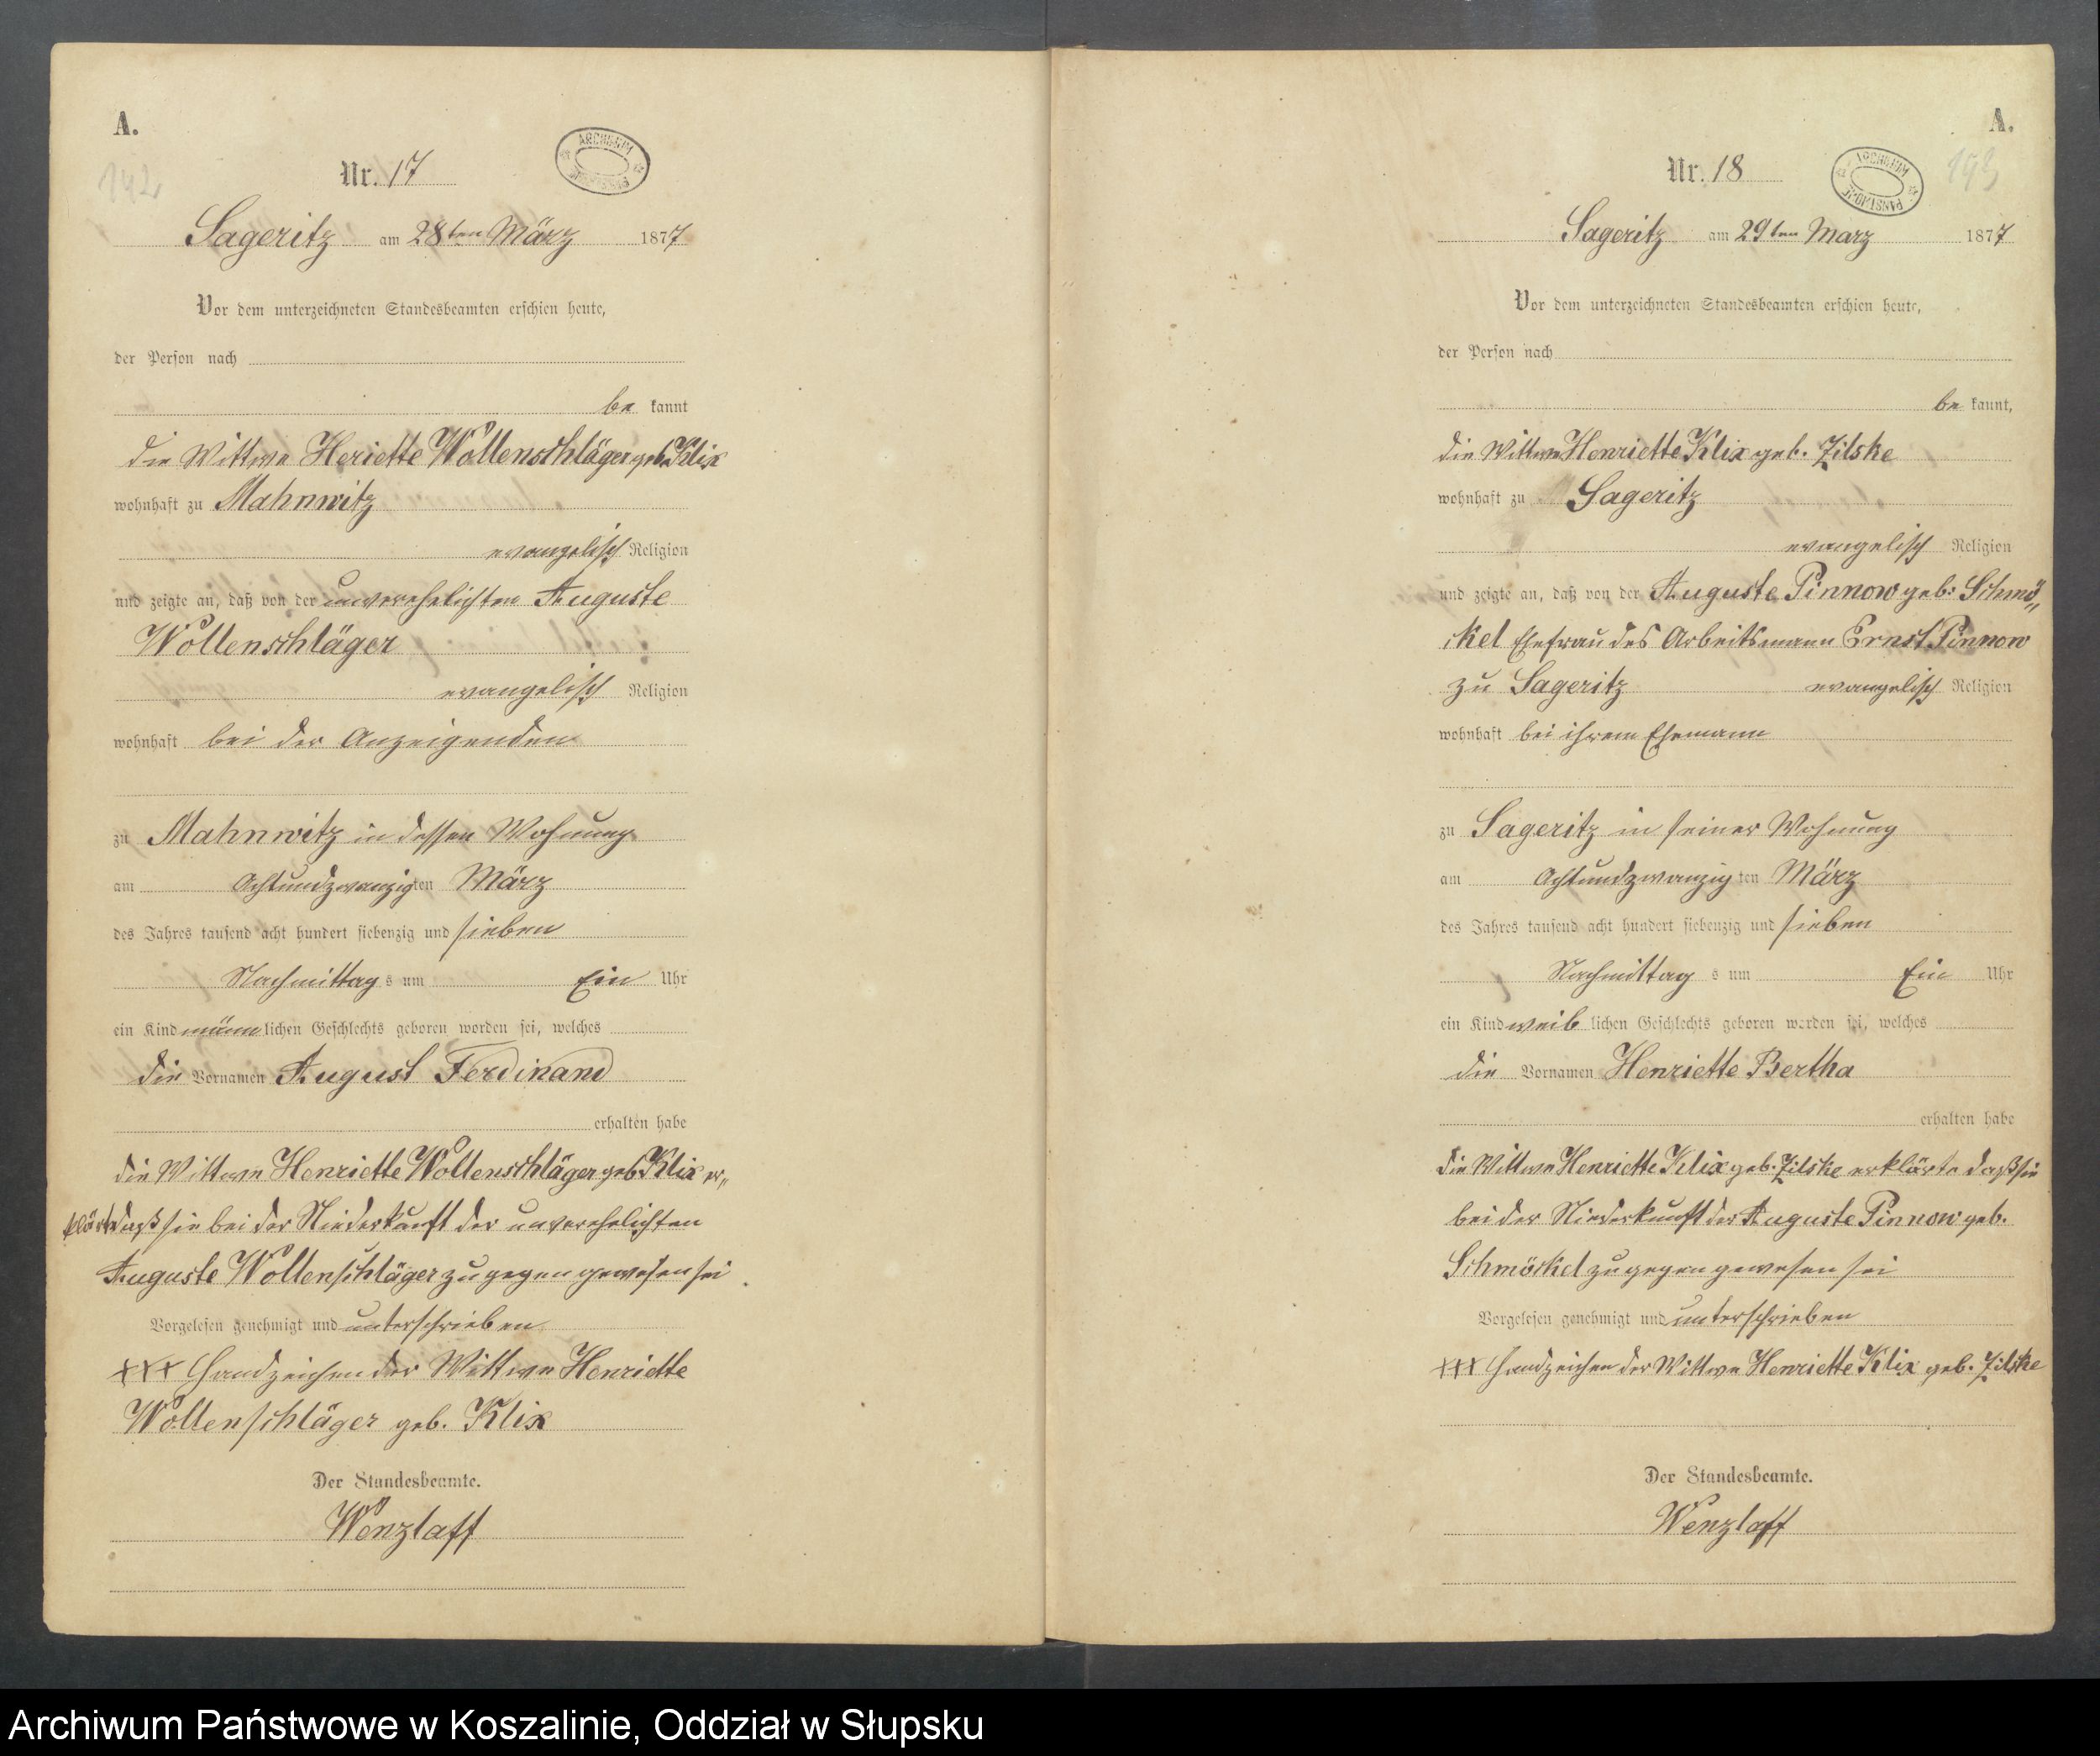 A.
142
Nr. 17
ARCHIWUM
Sageritz am 28ten März 1877
Vor dem unterzeichneten Standesbeamten erschien heute,
der Person nach
be kannt
die Wittwe Heriette Wollenschläger geb. Klix
wohnhaft zu Mahnwitz
evangelisch Religion
und zeigte an, daß von der unverehelichten Auguste
Wollenschläger
evangelisch Religion
wohnhaft bei der Anzeigenden
zu Mahnwitz in dessen Wohnung
am Achtundzwanzigten März
des Jahres tausend acht hundert siebenzig und sieben
Nachmittag s um Ein Uhr
ein Kind männlichen Geschlechts geboren worden sei, welches
die Vornamen August Ferdinand
erhalten habe
die Wittwe Henriette Wollenschläger geb. Klix er„
klärte daß sie bei der Niederkunft der unverehelichten
Auguste Wollenschläger zugegen gewesen sei.
Vorgelesen genehmigt und unterschrieben
+++ Handzeichen der Wittwe Henriette
Wollenschläger geb. Klix
Der Standesbeamte.
Wenzlaff
A.
193
Nr. 18
ARCHIWUM PAŃSTWOWE
Sageritz am 29ten Marz 1877
Vor dem unterzeichneten Standesbeamten erschien heute,
der Person nach
be kannt,
die Wittwe Henriette Klix geb. Zilske
wohnhaft zu Sageritz
evangelisch Religion
und zeigte an, daß von der Auguste Pinnow geb: Schmö„
ckel Ehefrau des Arbeitsmann Ernst Pinnow
zu Sageritz evangelisch Religion
wohnhaft bei ihrem Ehemann
zu Sageritz in seiner Wohnung
am Achtundzwanzig ten März
des Jahres tausend acht hundert siebenzig und sieben
Nachmittag s um Ein Uhr
ein Kind weib lichen Geschlechts geboren worden sei, welches
die Vornamen Henriette Bertha
erhalten habe
die Wittwe Henriette Klix geb. Zilske erklärte daß sie
bei der Niederkunft der Auguste Pinnow geb.
Schmöckel zugegen gewesen sei
Vorgelesen genehmigt und unterschrieben
+++ Handzeichen der Wittwe Henriette Klix geb. Zilske
Der Standesbeamte.
Wenzlaff
Archiwum Państwowe w Koszalinie, Oddział w Słupsku